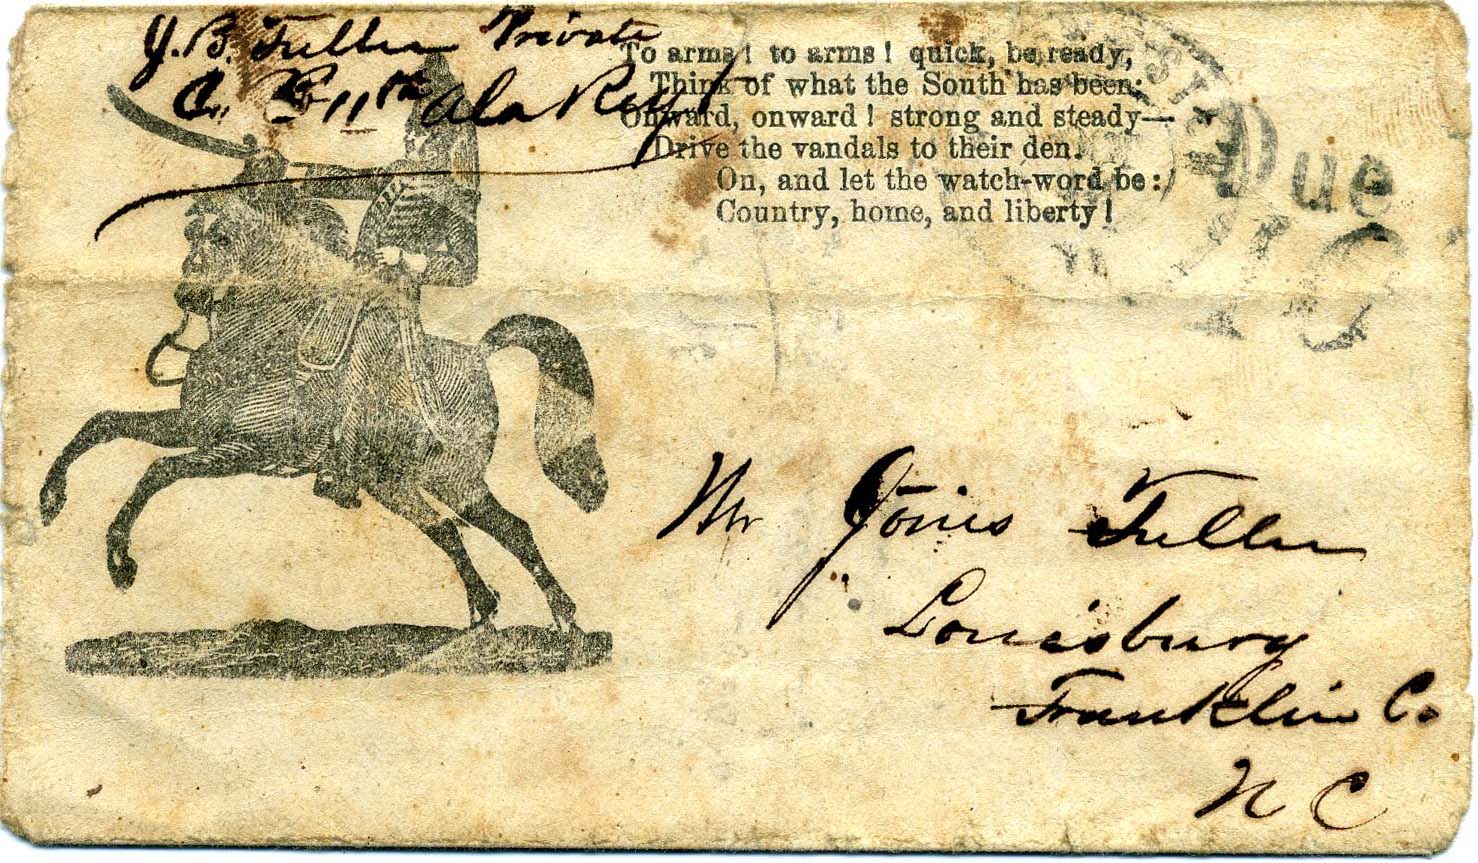 J. B. Fuller Private
Co. B 11th Ala Regt
To arms! to arms! quick, be ready,
Think of what the South has been;
Onward, onward! strong and steady—
Drive the vandals to their den.
On, and let the watch-word be:
Country, home, and liberty!
Due
10
Mr Jones Fuller
Louisburg
Franklin Co.
N C